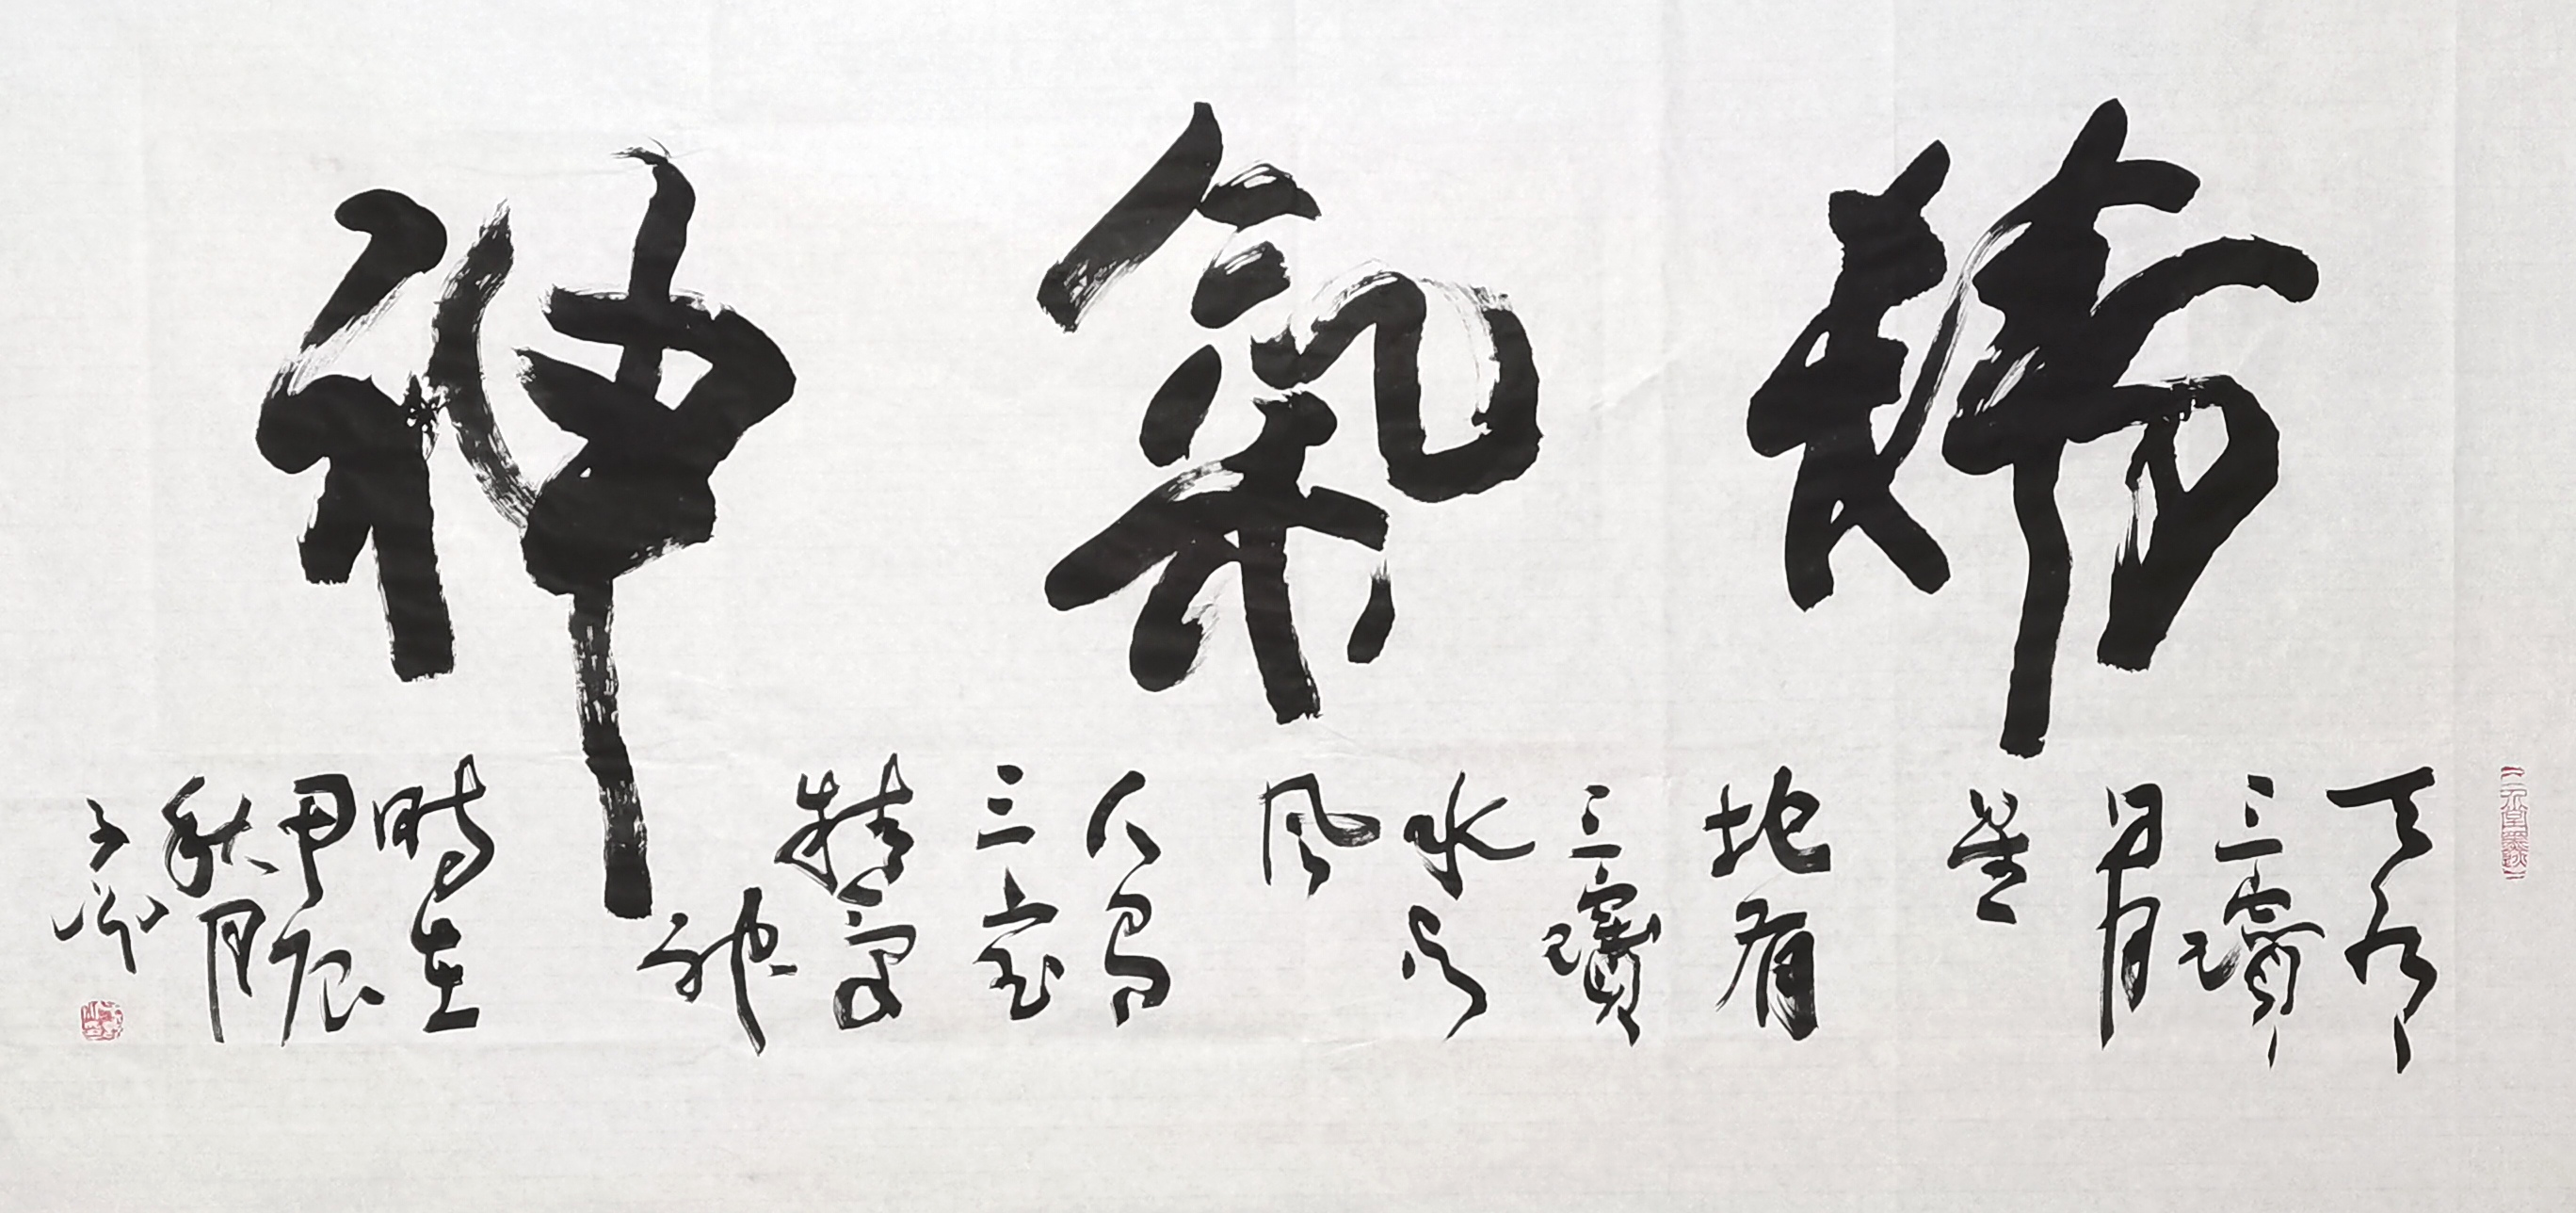 精氣神
天有
三寶
日月
星
地有
三寶
水火
風
人有
三宝
精氣
神
時在
甲辰
秋月